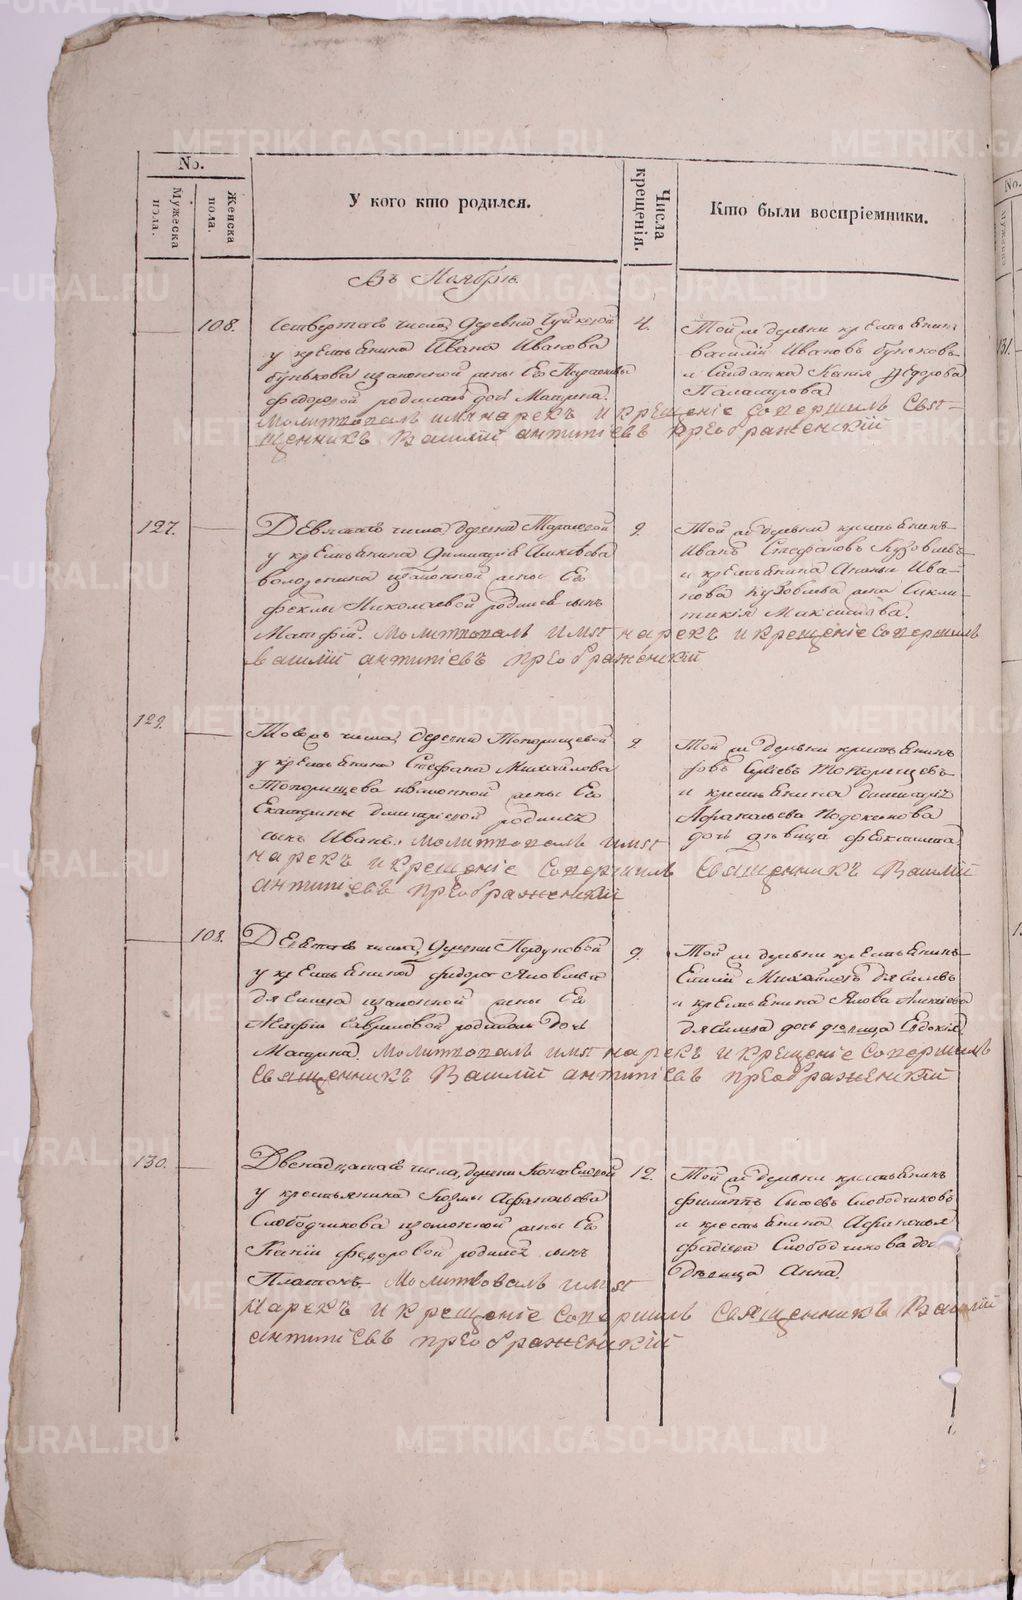 METRIKI.GASO-URAL.RU
No.
Мужеска пола.
Женска пола.
У кого кто родился.
Числа крещенія.
Кто были воспріемники.
Въ Ноябрѣ
108. Четвертаго числа, деревни 4. Той же деревни крестьянинъ
у крестьянина Ивана Иванова Василій Ивановъ Буньковъ
Бунькова изаконной жены Его и Солдатка Ксенія Ѳедорова
родилась дочь Матрона.
Молитвовалъ имя нарекъ и крещеніе совершилъ Свя-
щенникъ Василій Антипіевъ Преображенскій
127. Девятаго числа, деревни 9. Той же деревни крестьянинъ
у крестьянина Димитрія Алексѣева Иванъ Стефановъ
изаконной жены Его и крестьянина Ива-
Феклы Николаевой родился сынъ нова жена
Матфій. Молитвовалъ имя нарекъ и крещеніе совершилъ Максимова.
Василій Антипіевъ Преображенскій
129. Того жъ числа, деревни Топорищевой 9. Той же деревни крестьянинъ
у крестьянина Стефана Михайлова Топорищевъ
Топорищева изаконной жены Его и крестьянина Димитрія
Екатерины Димитріевой родился Афанасьева
сынъ Иванъ. Молитвовалъ имя дочь дѣвица Феоктиста.
нарекъ и крещеніе совершилъ Священникъ Василій
Антипіевъ Преображенскій
108. Девятаго числа, деревни 9. Той же деревни крестьянинъ
у крестьянина Федора Яковлева Михайловъ
изаконной жены Его и крестьянина Якова Алексѣева
Агафіи Гавриловой родилась дочь дочь дѣвица Евдокія
Матрона. Молитвовалъ имя нарекъ и крещеніе совершилъ
Священникъ Василій Антипіевъ Преображенскій
130. Двенадцатаго числа, деревни 12. Той же деревни крестьянинъ
у крестьянина Козмы Афанасьева Филиппъ Сысоевъ Слободчиковъ
Слободчикова изаконной жены Его и крестьянина Афанасья
Ксеніи Федоровой родился сынъ Слободчикова до
Платонъ. Молитвовалъ имя дѣвица Анна.
нарекъ и крещеніе совершилъ Священникъ Василій
Антипіевъ Преображенскій